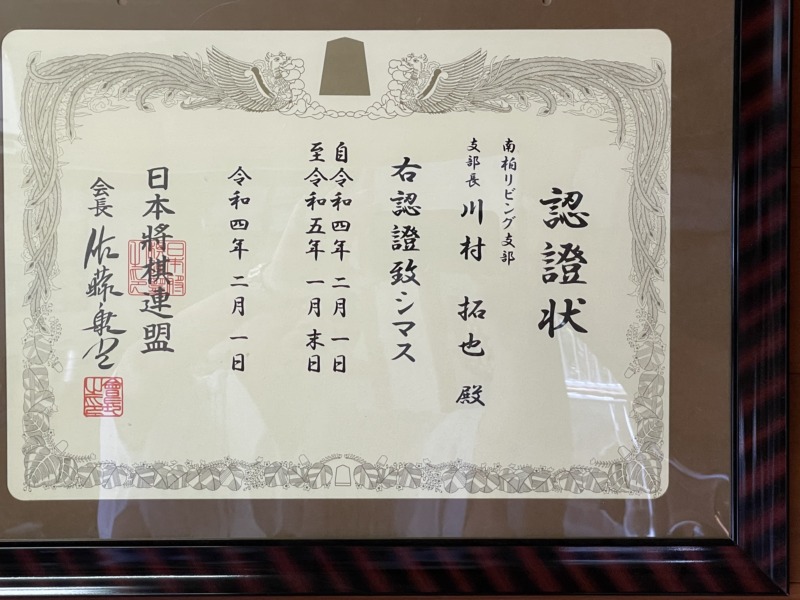 認證状
南柏リビング支部
支部長 川村 拓也 殿
右認證致シマス
自令和四年 二月 一日
至令和五年 一月 末日
令和四年 二月 一日
日本將棋連盟
会長 佐藤康光